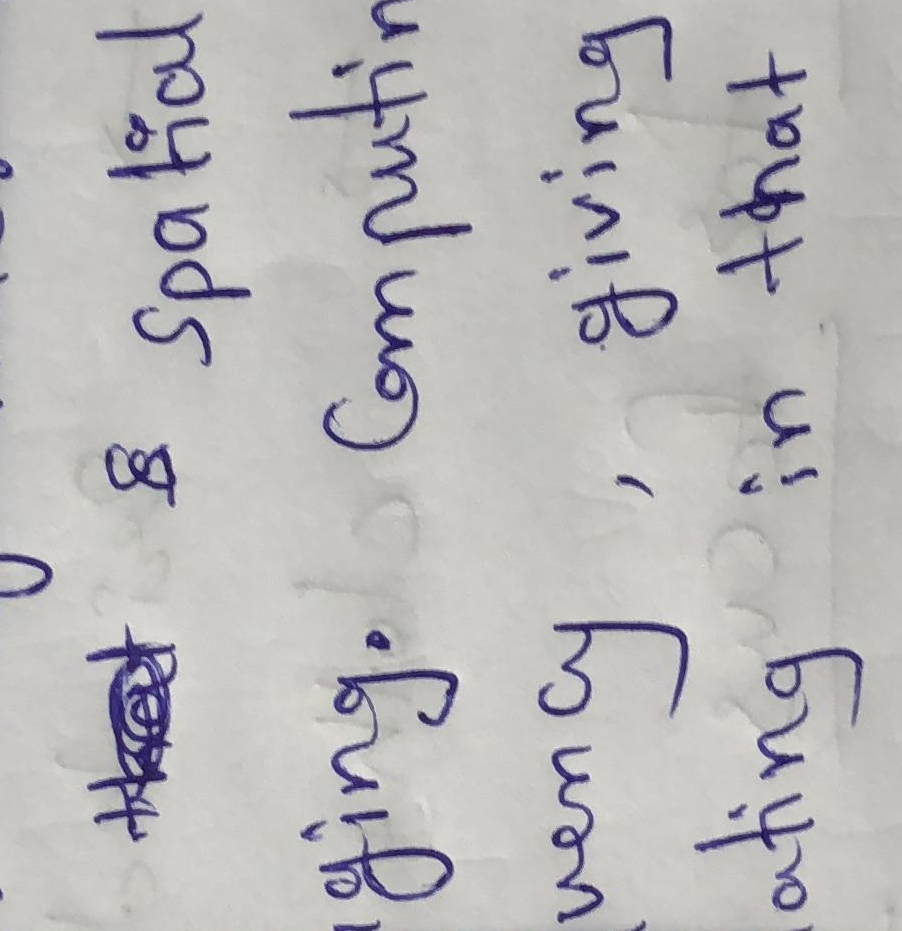 & spatial
ging. Computin
uency, giving
ating in that